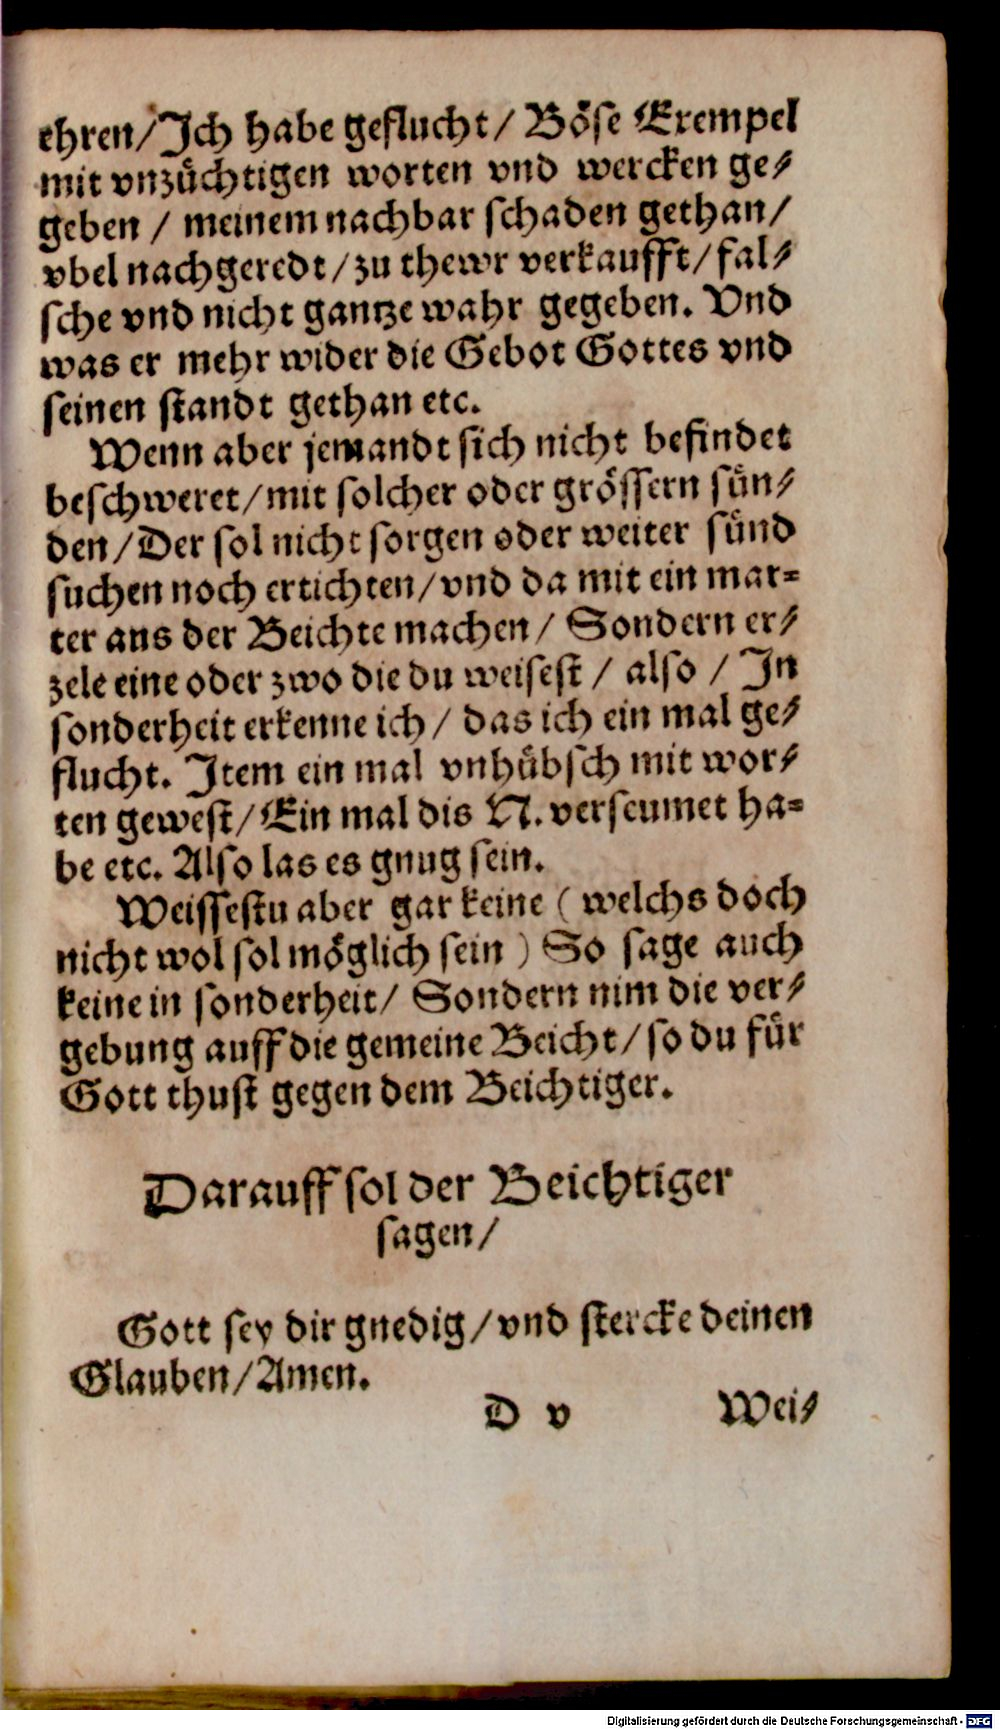 ehren/Ich habe geflucht/ Böse Exempel
mit vnzüchtigen worten vnd wercken ge-
geben / meinem nachbar schaden gethan/
vbel nachgeredt/zu thewr verkaufft/fal-
sche vnd nicht gantze wahr gegeben. Vnd
was er mehr wider die Gebot Gottes vnd
seinen standt gethan etc.
Wenn aber jemandt sich nicht befindet
beschweret/mit solcher oder grössern sün-
den/Der sol nicht sorgen oder weiter sünd
suchen noch ertichten/vnd da mit ein mar-
ter aus der Beichte machen/ Sondern er-
zele eine oder zwo die du weisest / also / In
sonderheit erkenne ich/ das ich ein mal ge-
flucht. Item ein mal vnhübsch mit wor-
ten gewest/Ein mal dis N. verseumet ha-
be etc. Also las es gnug sein.
Weissestu aber gar keine ( welchs doch
nicht wol sol möglich sein ) So sage auch
keine in sonderheit/ Sondern nim die ver-
gebung auff die gemeine Beicht/so du für
Gott thust gegen dem Beichtiger.
Darauff sol der Beichtiger
sagen/
Gott sey dir gnedig/vnd stercke deinen
Glauben/Amen.
D v Wei-
Digitalisierung gefördert durch die Deutsche Forschungsgemeinschaft - DFG